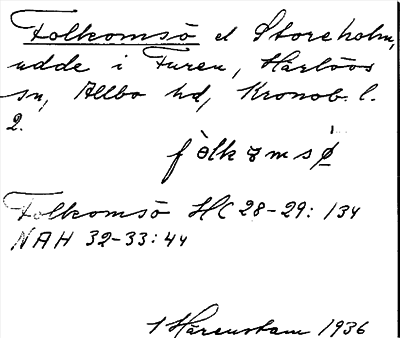 Folkomsö el Storeholm,
udde i Furen, Härlövs
sn, Allbo hd, Kronob. l.
2.
fòlkɷmsø̀
Folkomsö HC 28-29: 134
NAH 32-33: 44
1 Härenstam 1936